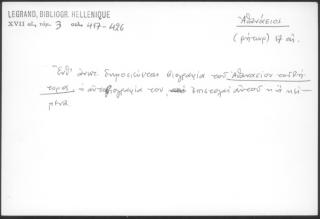 LEGRAND, BIBLIOGR. HELLENIQUE
XVII αἰ, τόμ. 3 σελ. 417-426
Ἀθανάσιος
(ρήτωρ) 17 αἰ.
Ἔνθ' ἀνωτ. δημοσιεύονται βιογραφία τοῦ Ἀθανασίου τοῦ Ρή-
τορος, ἡ αὐτοβιογραφία του, ἐπιστολαί αὐτοῦ κ.ἄ. κεί-
μενα